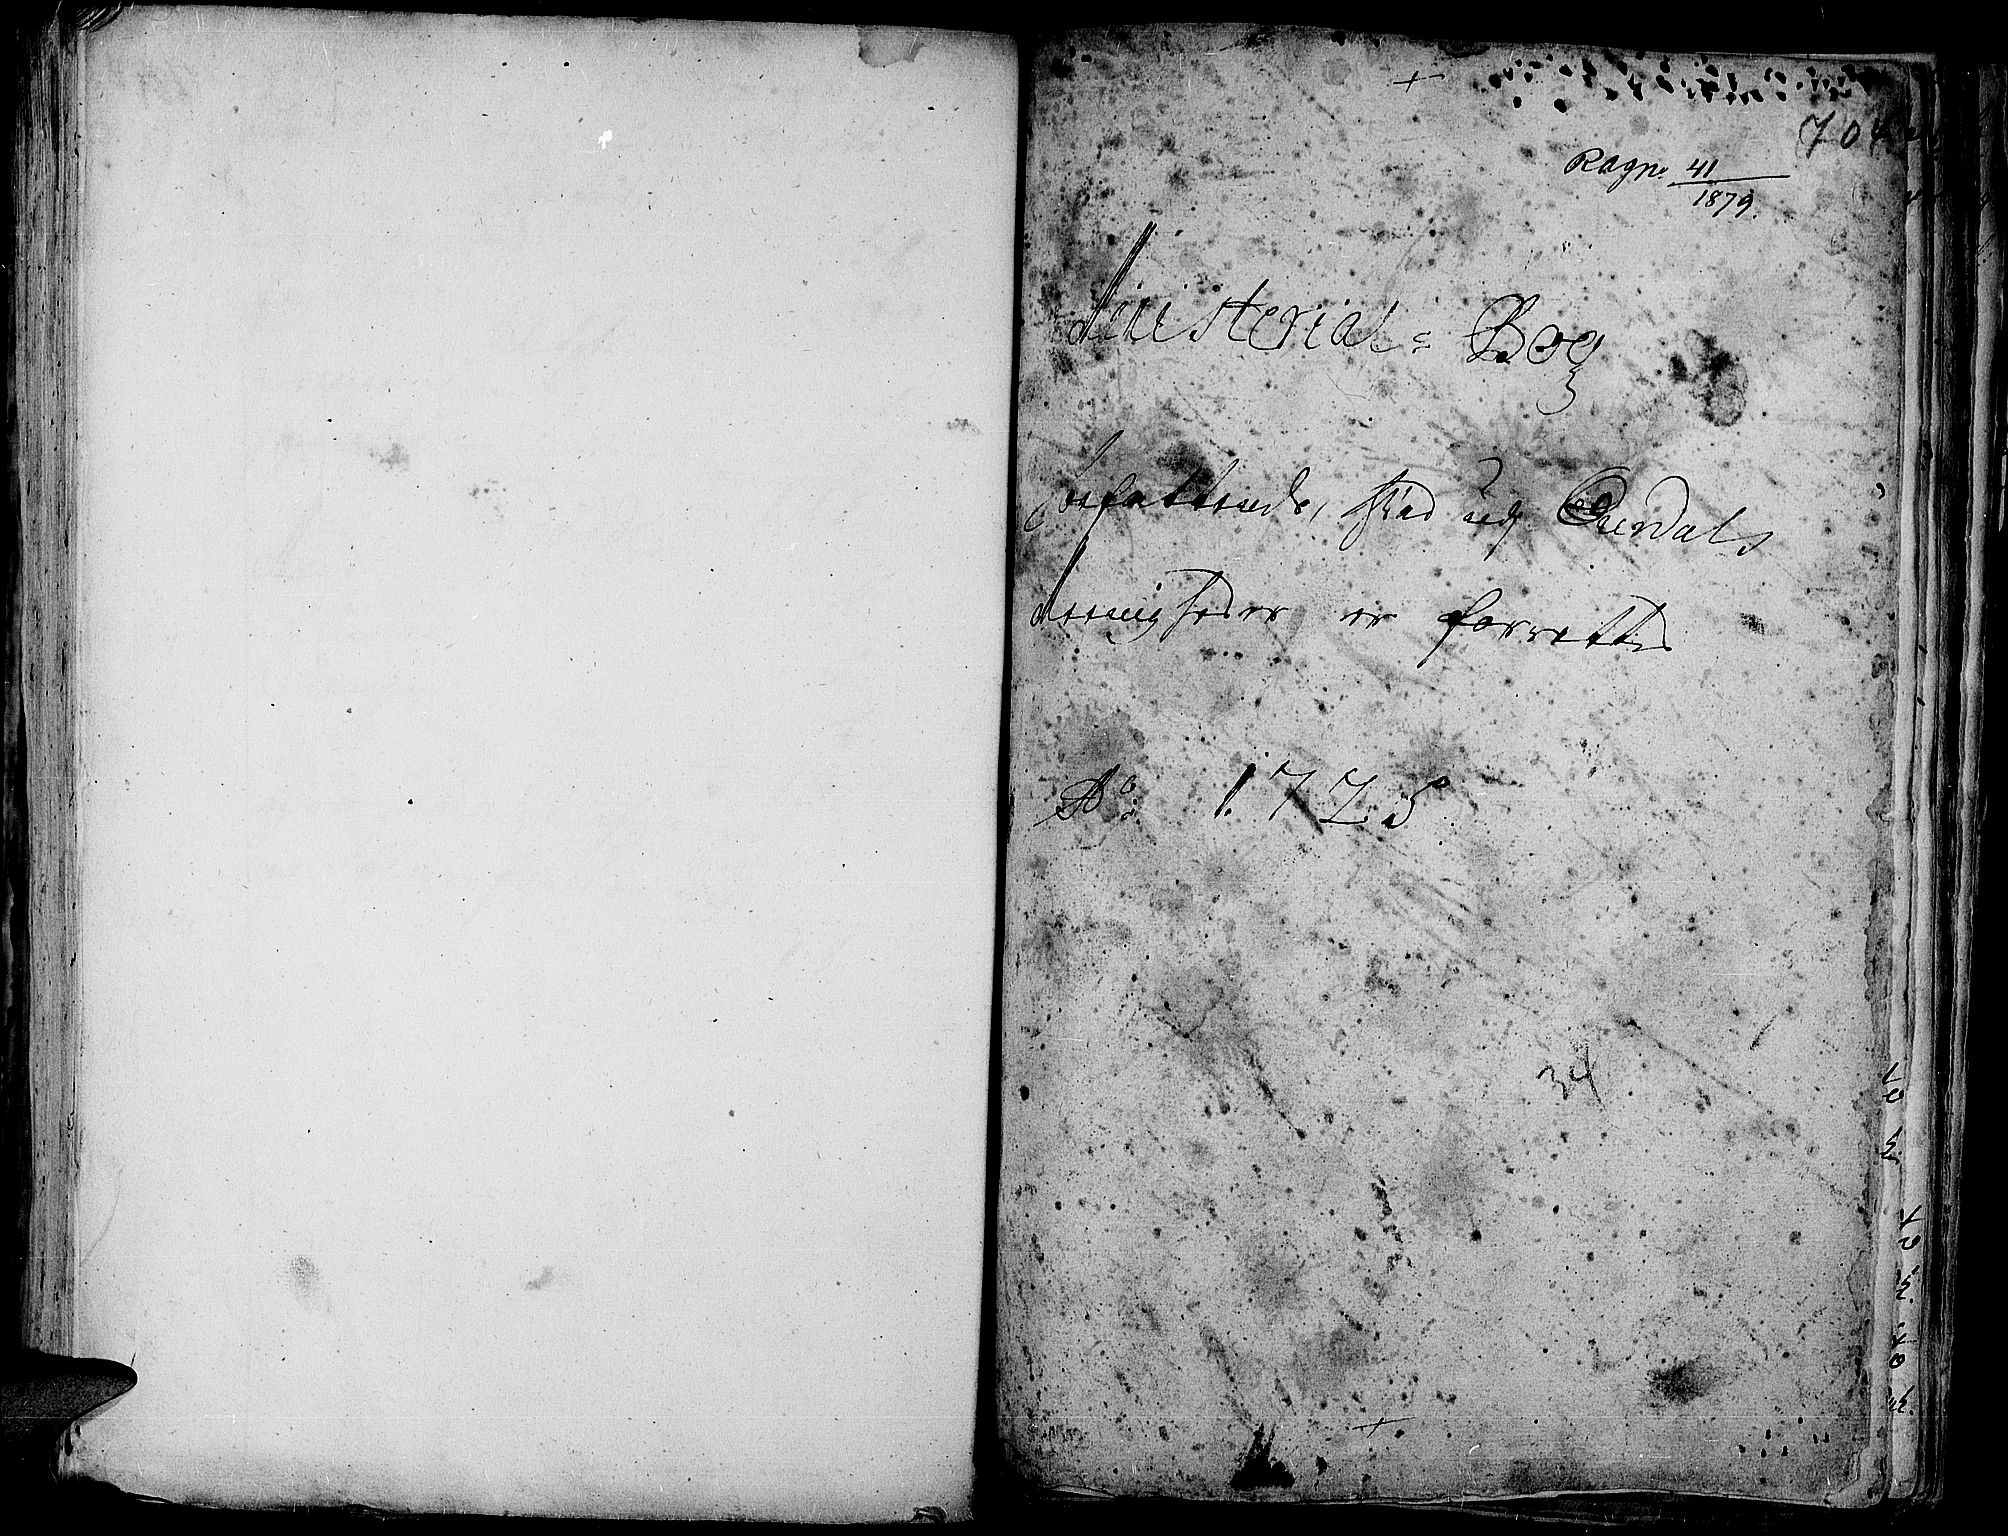 704
Ragn. 41
1879.
Ministerial= Bog
forfattende, hvad udj Aurdals
Meenigheder er forrettet
Ao 1725
34